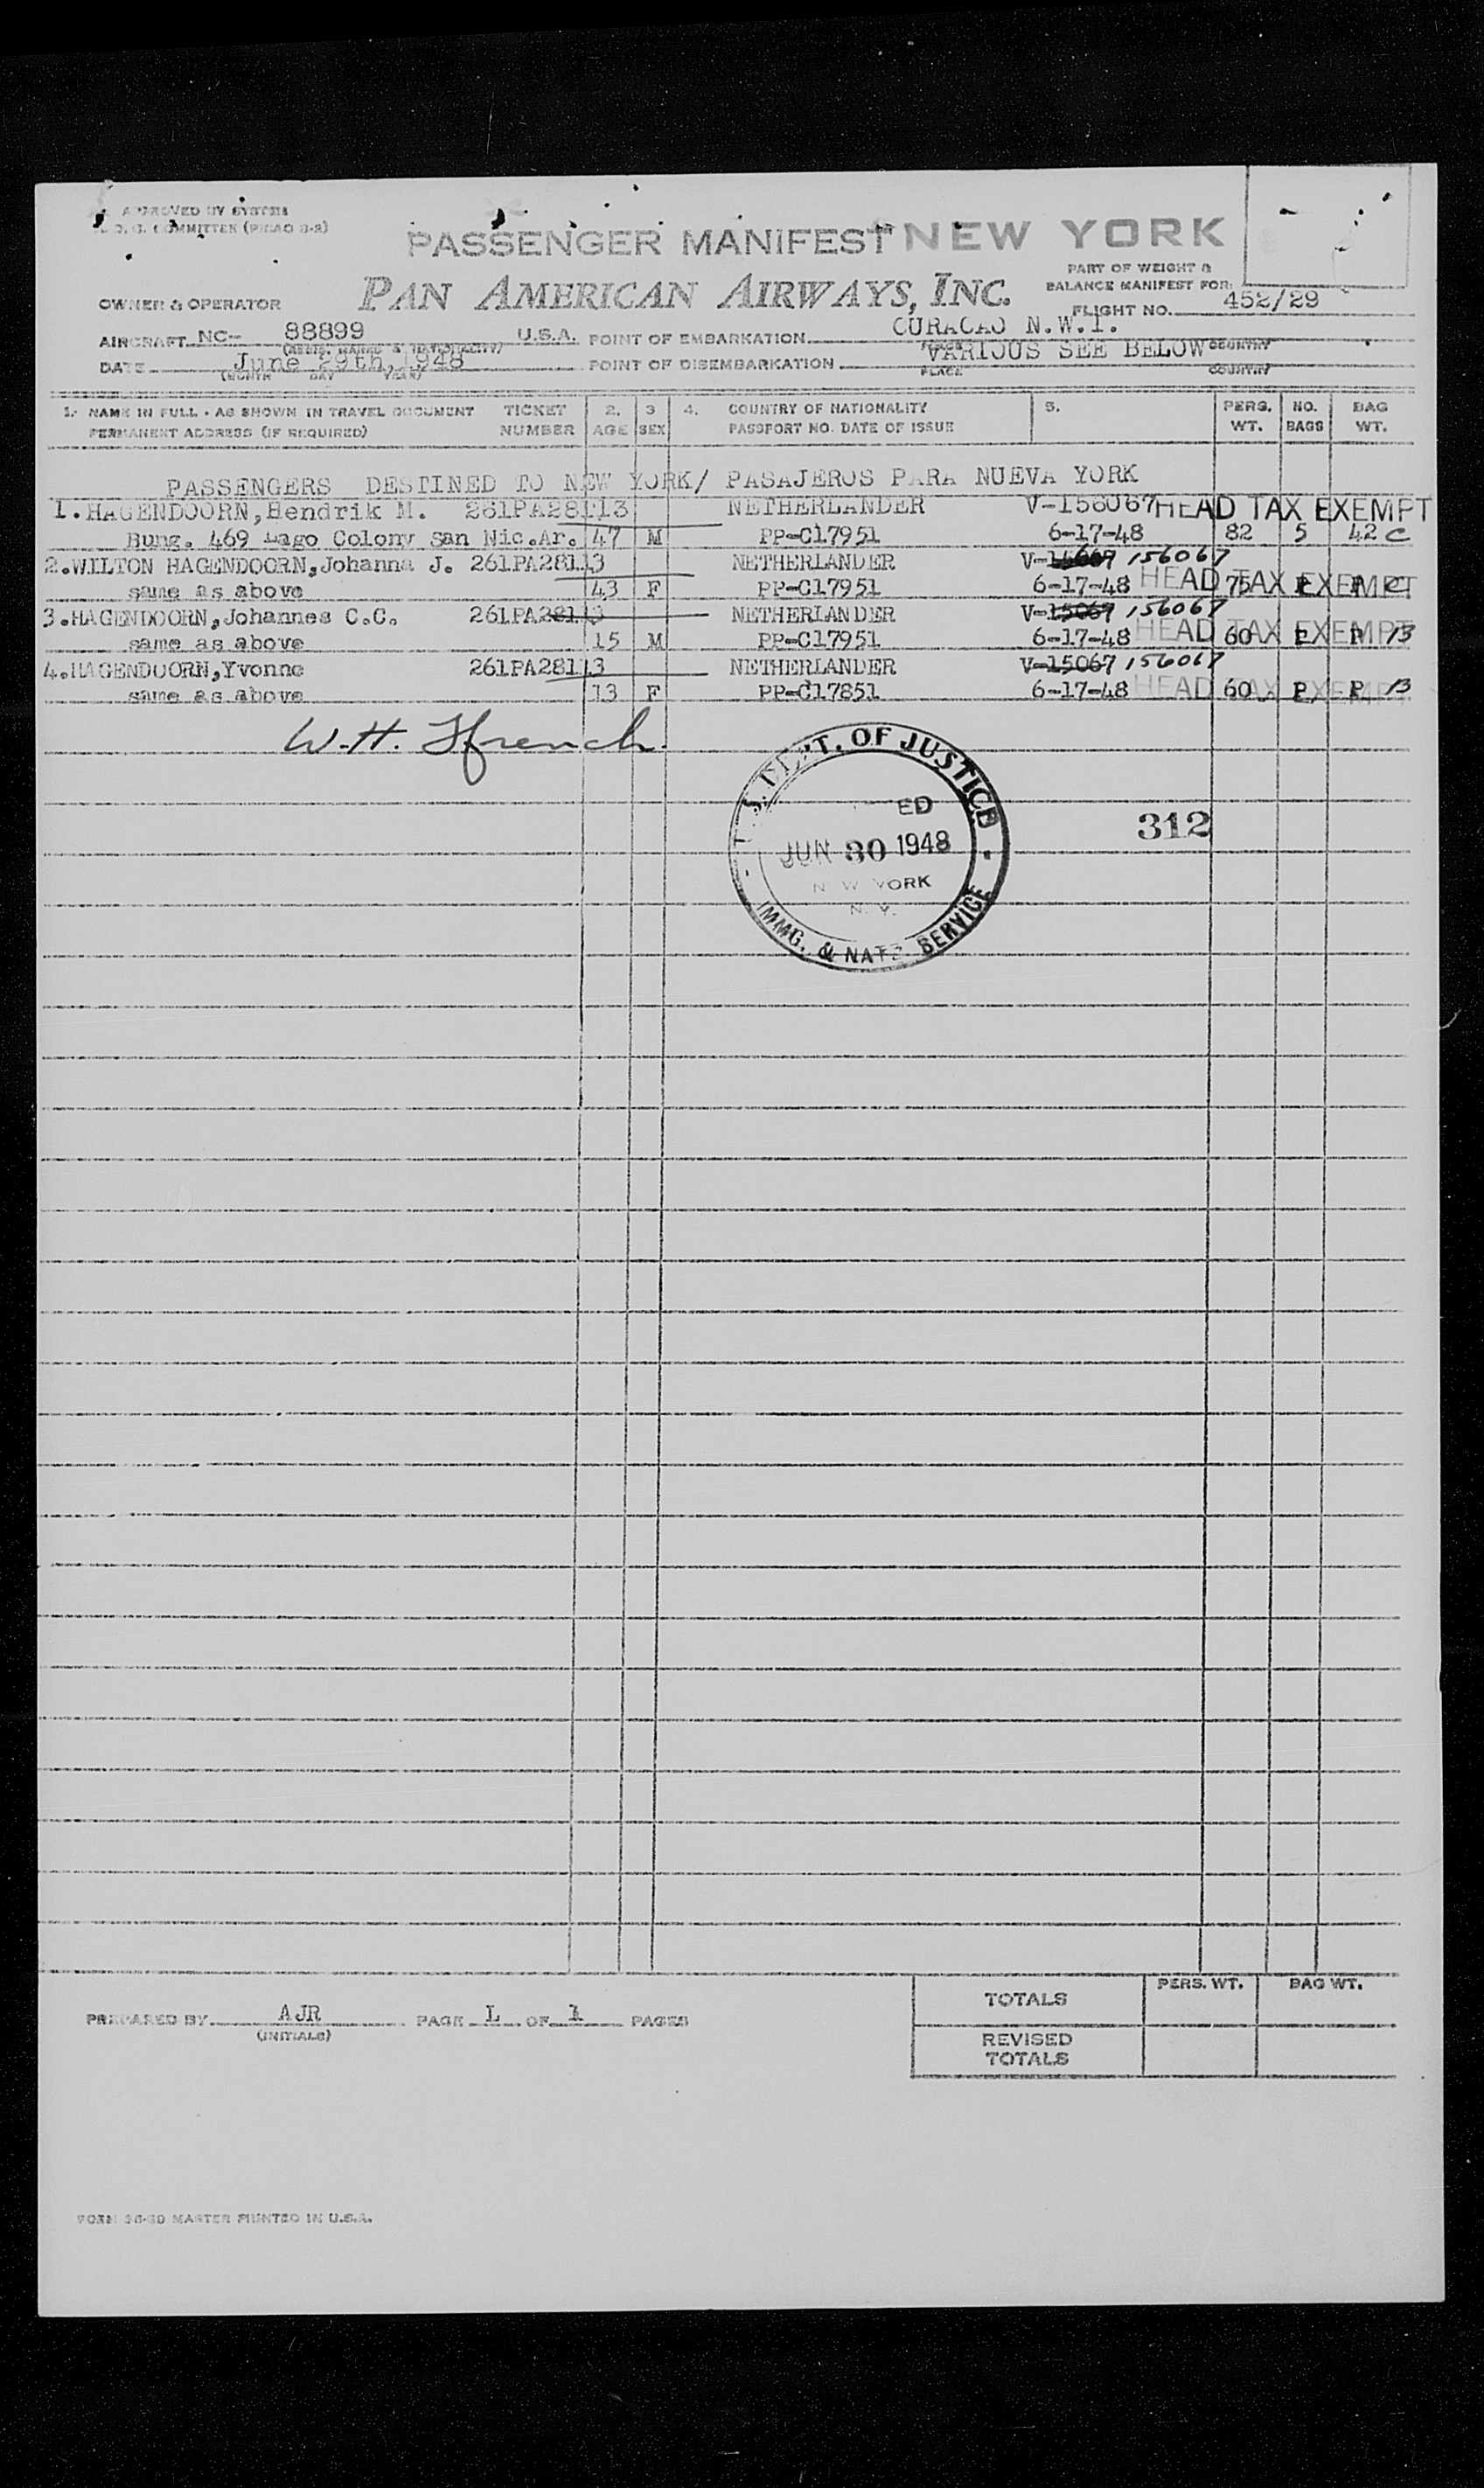 APPROVED BY SYSTEM
COMMITTEE (PICAO 8-2)
PASSENGER MANIFEST NEW YORK
PAN AMERICAN AIRWAYS, INC.
PART OF WEIGHT &
BALANCE MANIFEST FOR:
OWNER & OPERATOR
FLIGHT NO. 452/29
AIRCRAFT NC- 88899 U.S.A. POINT OF EMBARKATION CURACAO N.W.I.
DATE June 29th, 1948 POINT OF DISEMBARKATION VARIOUS SEE BELOW COUNTRY
(MONTH DAY YEAR) PLACE COUNTRY
1. NAME IN FULL - AS SHOWN IN TRAVEL DOCUMENT TICKET 2. 3 4. COUNTRY OF NATIONALITY 5. PERS. NO. BAG
PERMANENT ADDRESS (IF REQUIRED) NUMBER AGE SEX PASSPORT NO. DATE OF ISSUE WT. BAGS WT.
PASSENGERS DESTINED TO NEW YORK/ PASAJEROS PARA NUEVA YORK
1. HAGENDOORN, Hendrik M. 261PA28113 NETHERLANDER V-156067 HEAD TAX EXEMPT
Bung. 469 Lago Colony San Nic.Ar. 47 M PP-C17951 6-17-48 82 5 42 C
2. WILTON HAGENDOORN, Johanna J. 261PA28113 NETHERLANDER V- 156067
same as above 43 F PP-C17951 6-17-48 HEAD TAX EXEMPT 75 P P C
3. HAGENDOORN, Johannes C.C. 261PA28113 NETHERLANDER V-15067 156067
same as above 15 M PP-C17951 6-17-48 HEAD TAX EXEMPT 60 P P B
4. HAGENDOORN, Yvonne 261PA28113 NETHERLANDER V-15067 156067
same as above 13 F PP-C17851 6-17-48 HEAD TAX EXEMPT 60 P P B
W.H. Ffrench
DEPT. OF JUSTICE
ED
JUN 30 1948
NEW YORK
N. Y.
IMMG. & NATZ. SERVICE
312
PREPARED BY AJR PAGE 1 OF 1 PAGES
(INITIALS)
PERS. WT. BAG WT.
TOTALS
REVISED
TOTALS
MASTER PRINTED IN U.S.A.